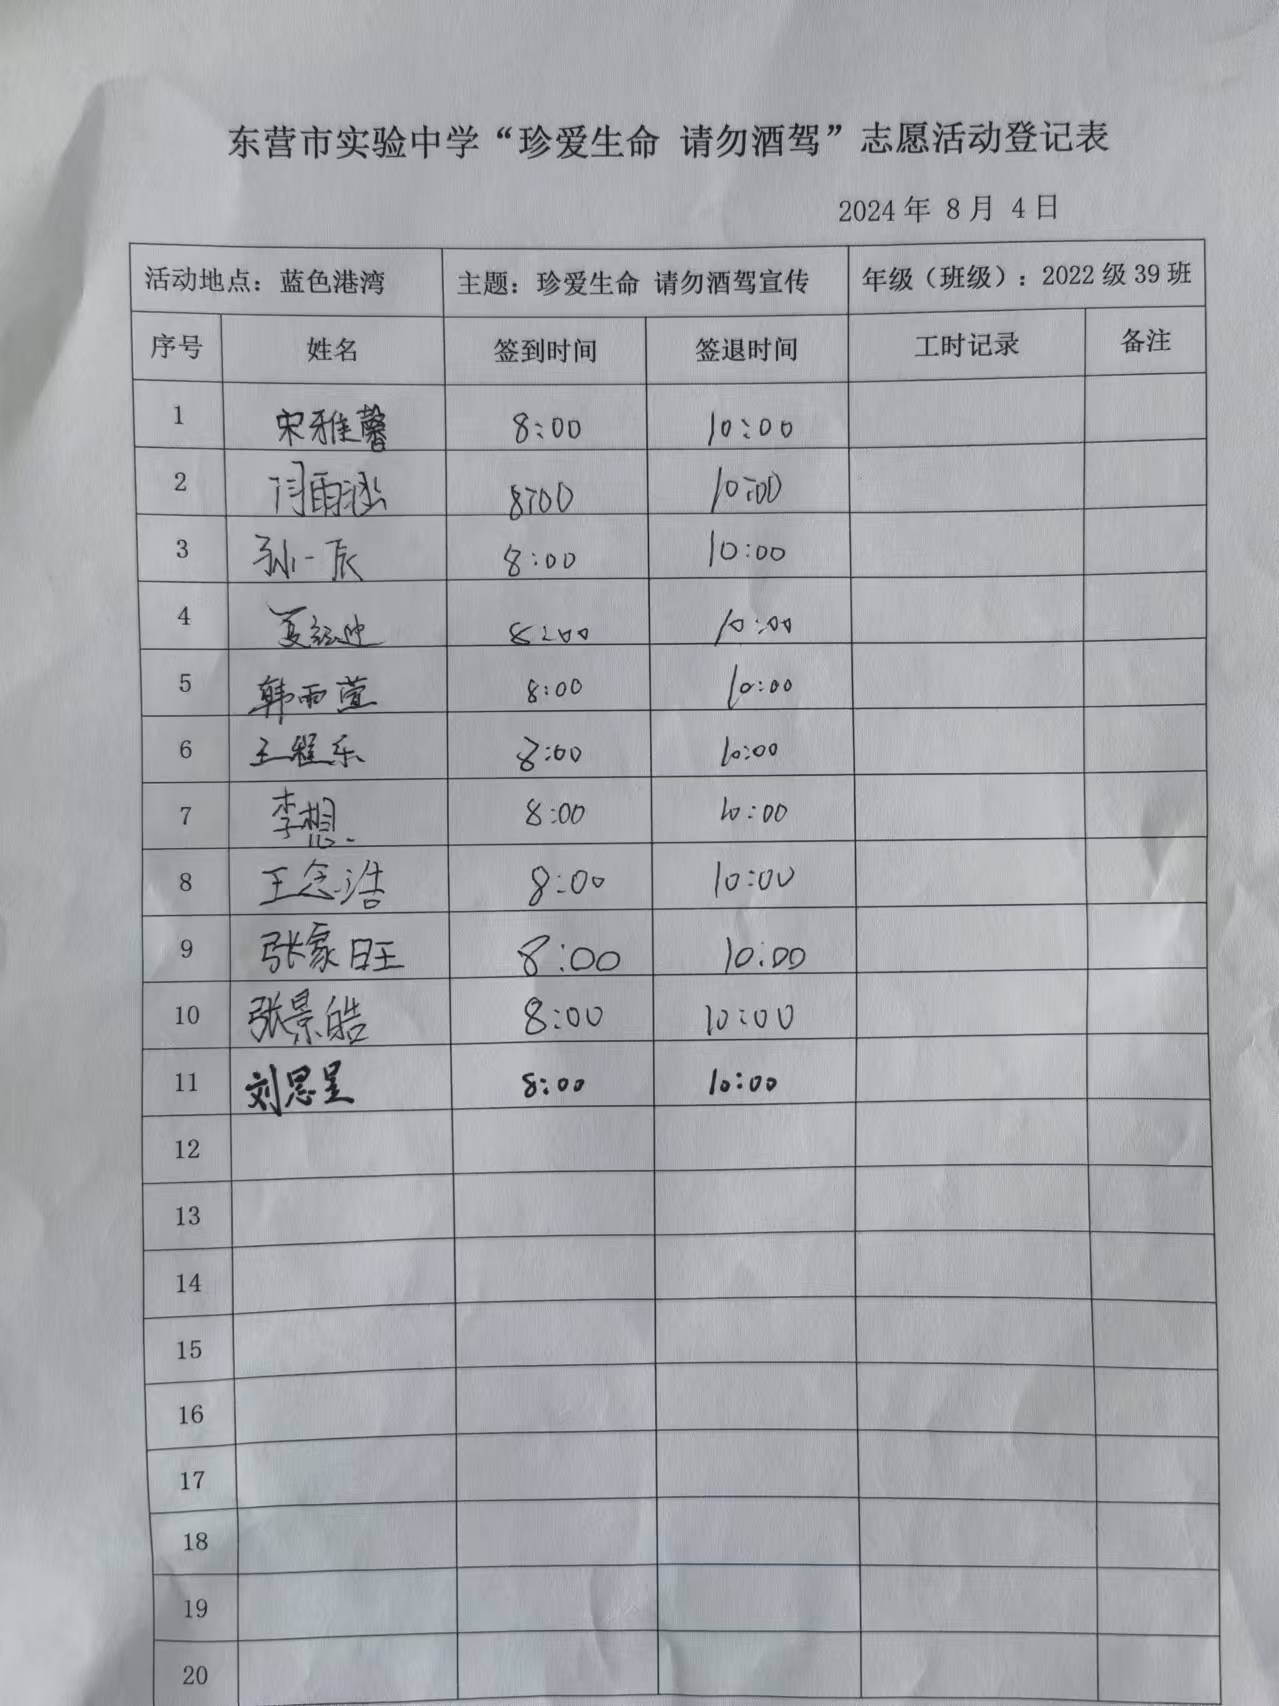 东营市实验中学“珍爱生命 请勿酒驾”志愿活动登记表
2024 年 8 月 4 日
活动地点：蓝色港湾 主题：珍爱生命 请勿酒驾宣传 年级（班级）：2022 级 39 班
序号 姓名 签到时间 签退时间 工时记录 备注
1 宋雅馨 8:00 10:00
2 闫雨涵 8:00 10:00
3 孙一辰 8:00 10:00
4 8:00 10:00
5 韩雨萱 8:00 10:00
6 王程乐 8:00 10:00
7 李想 8:00 10:00
8 王念浩 8:00 10:00
9 张家旺 8:00 10:00
10 张景皓 8:00 10:00
11 刘思呈 8:00 10:00
12
13
14
15
16
17
18
19
20